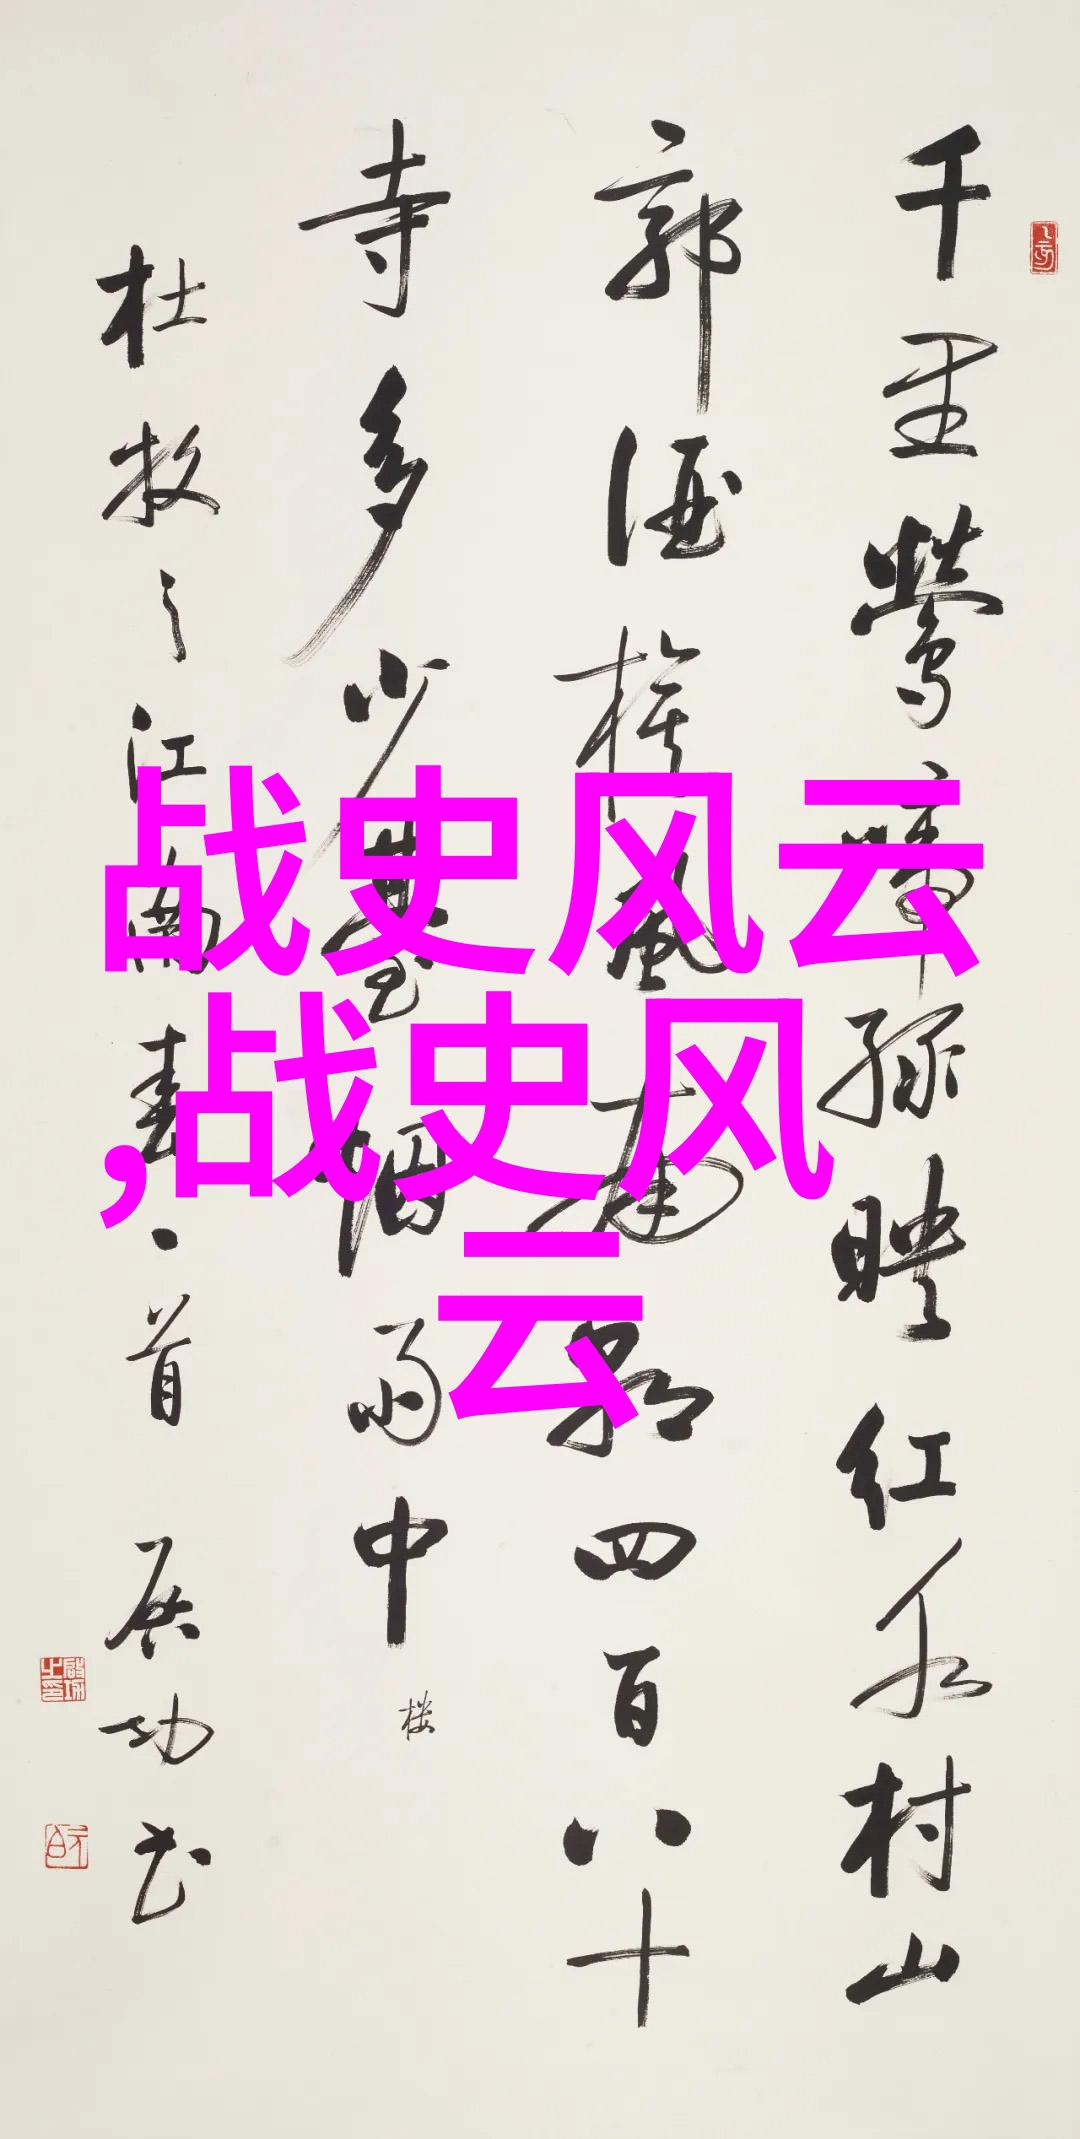 千里鶯啼綠映紅水村山
郭酒旗風南朝四百八十
寺多少臺烟雨中
楼
杜牧之江南春一首 啟功书
战史风云
,战史风
云